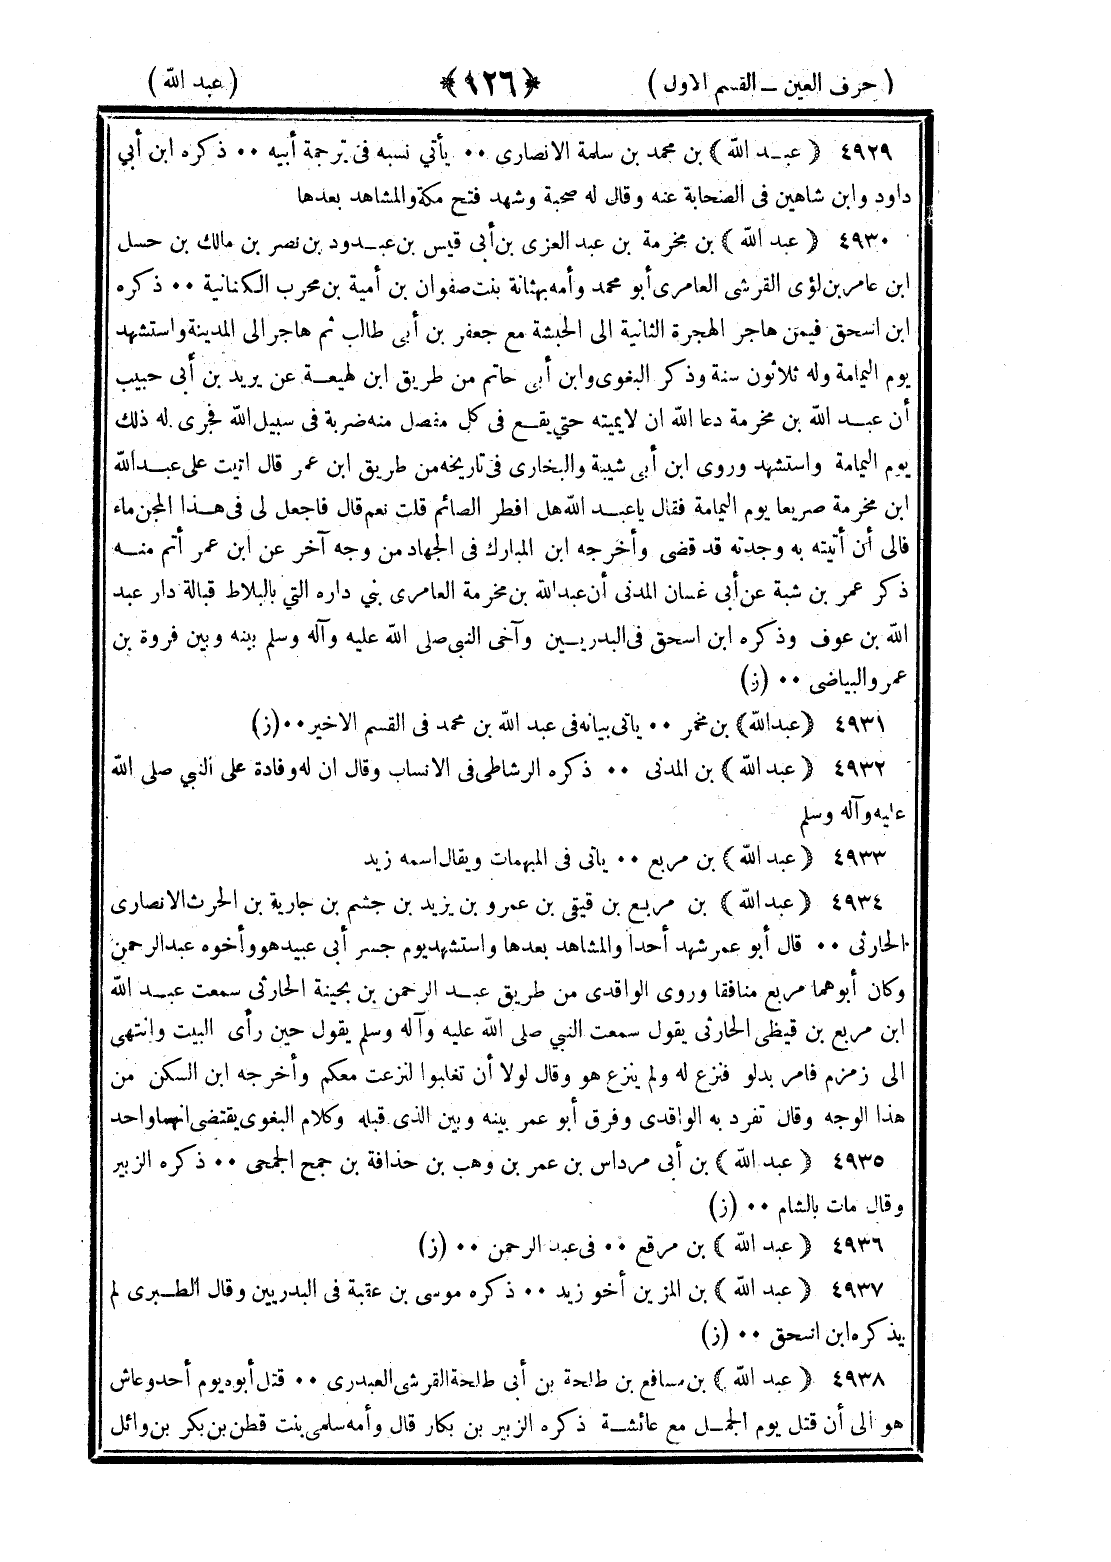 ( حرف العين ــ القسم الاول ) ﴿١٢٦﴾ ( عبد الله )
٤٩٢٩ ﴿ عبـد الله ﴾ بن محمد بن سلمة الانصارى ٠٠ يأتي نسبه فى ترجمة أبيه ٠٠ ذكره ابن أبي
داود وابن شاهين فى الصحابة عنه وقال له صحبة وشهد فتح مكة والمشاهد بعدها
٤٩٣٠ ﴿ عبد الله ﴾ بن مخرمة بن عبد العزى بن أبى قيس بن عبـدود بن نصر بن مالك بن حسل
ابن عامر بن لؤى القرشى العامرى أبو محمد وأمه بهثانة بنت صفوان بن أمية بن محرب الكنانية ٠٠ ذكره
ابن اسحق فيمن هاجر الهجرة الثانية الى الحبشة مع جعفر بن أبى طالب ثم هاجر الى المدينة واستشهد
يوم اليمامة وله ثلاثون سنة وذكر البغوى وابن أبى حاتم من طريق ابن لهيعـة عن يريد بن أبى حبيب
أن عبـد الله بن مخرمة دعا الله ان لايميته حتي يقـع فى كل مفصل منه ضربة فى سبيل الله فجرى له ذلك
يوم اليمامة واستشهد وروى ابن أبى شيبة والبخارى فى تاريخه من طريق ابن عمر قال اتيت على عبـد الله
ابن مخرمة صريعا يوم اليمامة فقال ياعبـد الله هل افطر الصائم قلت نعم قال فاجعل لى فى هـذا المجن ماء
فالى أن أتيته به وجدته قد قضى وأخرجه ابن المبارك فى الجهاد من وجه آخر عن ابن عمر أتم منـه
ذكر عمر بن شبة عن أبى غسان المدنى أن عبد الله بن مخرمة العامرى بني داره التي بالبلاط قبالة دار عبد
الله بن عوف وذكره ابن اسحق فى البدريـين وآخى النبي صلى الله عليه وآله وسلم بينه وبين فروة بن
عمر والبياضى ٠٠ (ز)
٤٩٣١ ﴿عبد الله﴾ بن مخمر ٠٠ ياتى بيانه فى عبد الله بن محمد فى القسم الاخير ٠٠ (ز)
٤٩٣٢ ﴿ عبد الله ﴾ بن المدنى ٠٠ ذكره الرشاطى فى الانساب وقال ان له وفادة على النبي صلى الله
عليه وآله وسلم
٤٩٣٣ ﴿ عبد الله ﴾ بن مربع ٠٠ ياتى فى المبهمات ويقال اسمه زيد
٤٩٣٤ ﴿ عبد الله ﴾ بن مربـع بن قيقى بن عمرو بن يزيد بن جشم بن جارية بن الحرث الانصارى
الحارثى ٠٠ قال أبو عمر شهد أحدا والمشاهد بعدها واستشهد يوم جسر أبى عبيد هو وأخوه عبد الرحمن
وكان أبوهما مربع منافقا وروى الواقدى من طريق عبـد الرحمن بن بحينة الحارثى سمعت عبـد الله
ابن مربع بن قيظى الحارثى يقول سمعت النبي صلى الله عليه وآله وسلم يقول حين رأى البيت وانتهى
الى زمزم فامر بدلو فنزع له ولم ينزع هو وقال لولا أن تغلبوا لنزعت معكم وأخرجه ابن السكن من
هذا الوجه وقال تفرد به الواقدى وفرق أبو عمر بينه وبين الذى قبله وكلام البغوى يقتضى انهما واحد
٤٩٣٥ ﴿ عبد الله ﴾ بن أبى مرداس بن عمر بن وهب بن حذافة بن جمح الجمحى ٠٠ ذكره الزبير
وقال مات بالشام ٠٠ (ز)
٤٩٣٦ ﴿ عبد الله ﴾ بن مرقع ٠٠ فى عبد الرحمن ٠٠ (ز)
٤٩٣٧ ﴿ عبد الله ﴾ بن المزين أخو زيد ٠٠ ذكره موسى بن عقبة فى البدريين وقال الطـبرى لم
يذكره ابن اسحق ٠٠ (ز)
٤٩٣٨ ﴿ عبد الله ﴾ بن مسافع بن طلحة بن أبى طلحة القرشى العبدرى ٠٠ قتل أبوه يوم أحد وعاش
هو الى أن قتل يوم الجمـل مع عائشـة ذكره الزبير بن بكار قال وأمه سلمى بنت قطن بن بكر بن وائل